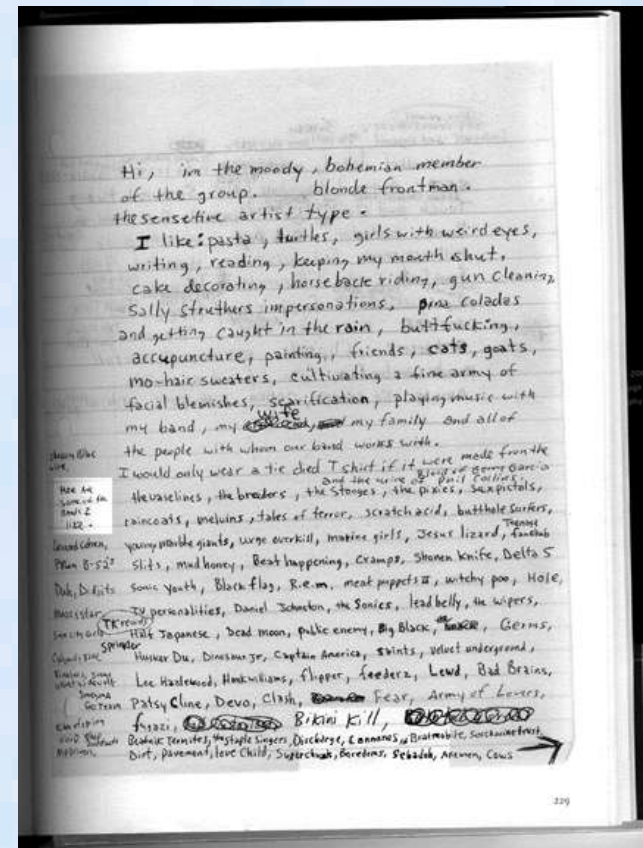 Hi, im the moody, bohemian member
of the group. blonde frontman.
the sensetive artist type.
I like: pasta, turtles, girls with weird eyes,
writing, reading, keeping my mouth shut,
cake decorating, horseback riding, gun cleaning,
Sally Struthers impersonations, pina coladas
and getting caught in the rain, buttfucking,
accupuncture, painting, friends, cats, goats,
mo-hair sweaters, cultivating a fine army of
facial blemishes, scarification, playing music with
my band, my wife my family and all of
the people with whom our band works with.
I would only wear a tie died T shirt if it were made from the
and the urine of Phil Collins. Blood of Gerry Garcia
the vaselines, the breeders, the Stooges, the pixies, sex pistols,
Here Are some of the Bands I like.
raincoats, melvins, tales of terror, scratch acid, butthole surfers,
Leonard Cohen, young marble giants, urge overkill, marine girls, Jesus lizard, Teenage fanclub
B-52s Slits, mudhoney, Beat happening, Cramps, Shonen Knife, Delta 5
Sonic youth, Black flag, R.e.m, meat puppets II, witchy poo, Hole,
Mazzistar TV personalities, Daniel Johnston, the Sonics, leadbelly, the wipers,
TK records Half Japanese, Dead moon, public enemy, Big Black, Germs,
Husker Du, Dinosaur Jr, Captain America, saints, velvet underground,
Lee Hazlewood, Hank williams, flipper, feederz, Lewd, Bad Brains,
Patsy Cline, Devo, Clash, Fear, Army of Lovers,
fugazi, Bikini Kill,
Beatnik Termites, the staple singers, Discharge, Cannanes, Bratmobile, Saccharine trust,
Dirt, pavement, love Child, Superchunk, Boredoms, Sebadoh, Axemen, Cows
229